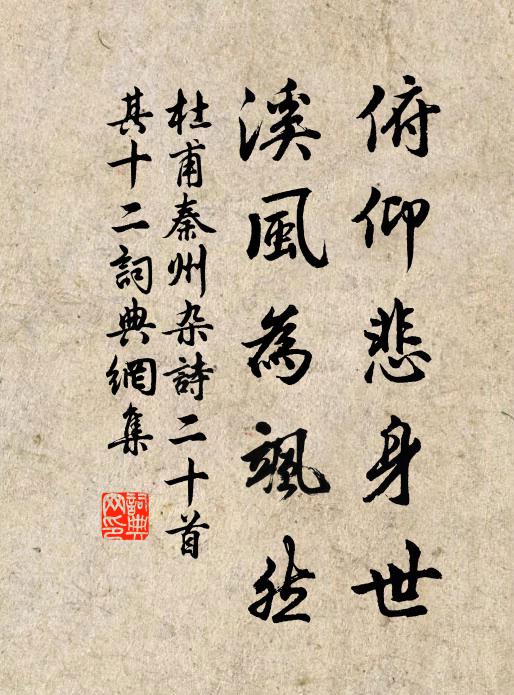 俯仰悲身世
溪風為颯然
杜甫秦州杂詩二十首
其十二詞典網集
詞典
网印